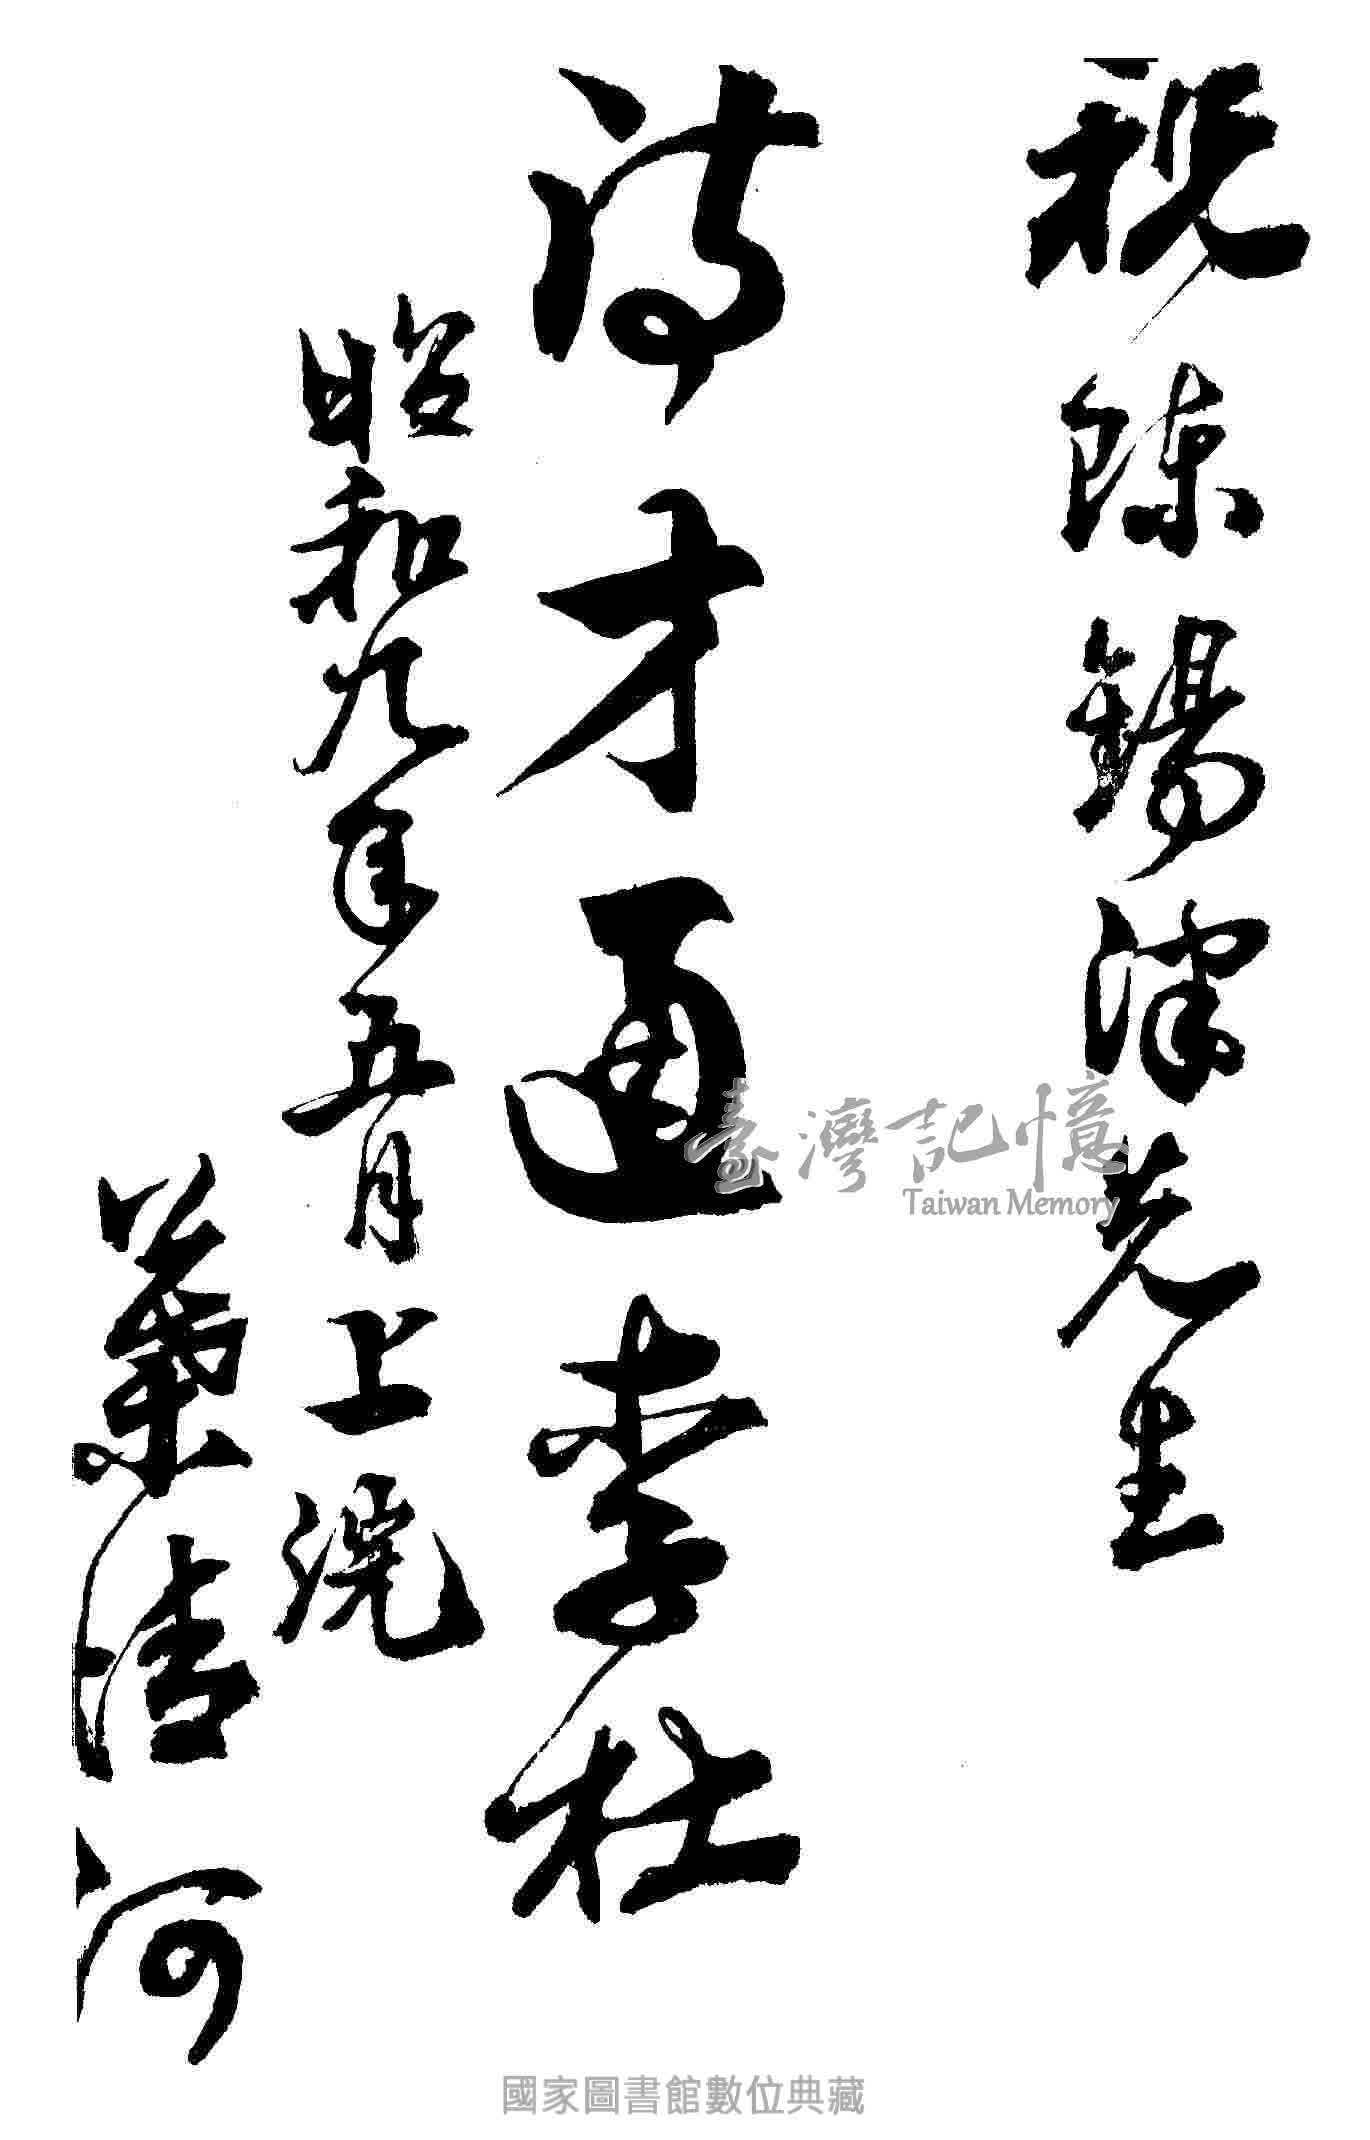 祝陳錫津先生
詩才適李杜
昭和九年五月上浣
葉清河
臺灣記憶
Taiwan Memory
國家圖書館數位典藏